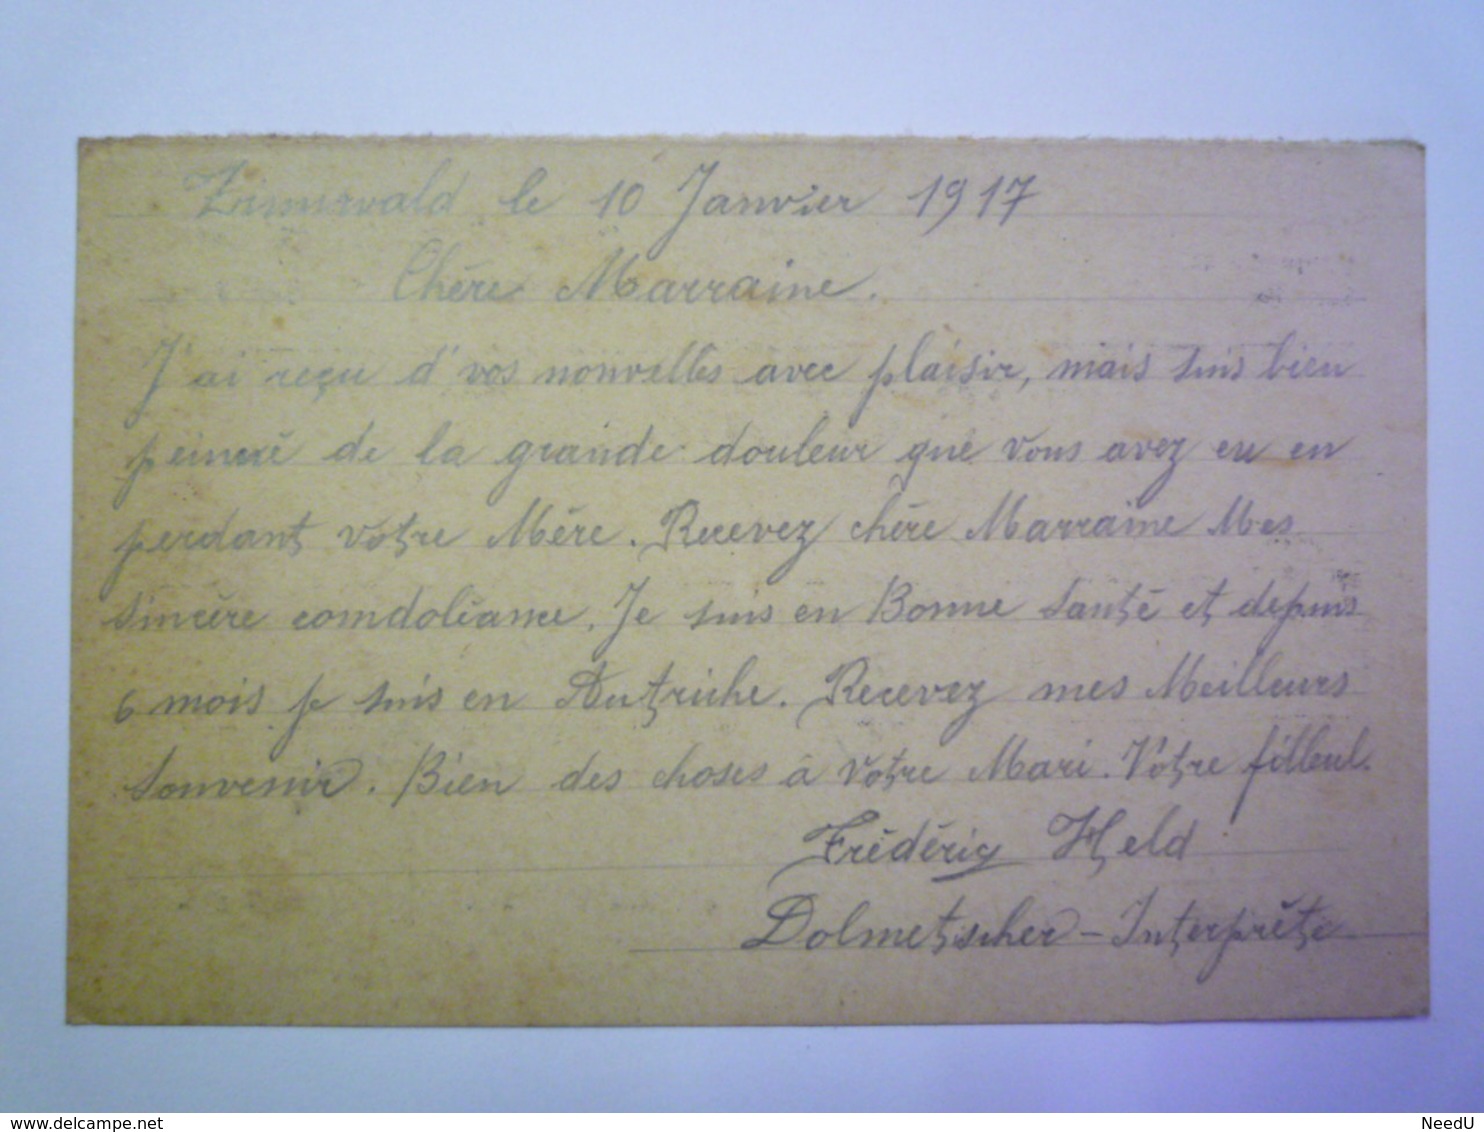 Zinnwald le 10 Janvier 1917
Chère Marraine.
J'ai reçu d'vos nouvelles avec plaisir, mais suis bien
peinné de la grande douleur que vous avez eu en
perdant votre Mère. Recevez chère Marraine Mes
sincère comdoléance. Je suis en Bonne Santé et depuis
6 mois je suis en Autriche. Recevez mes Meilleurs
Souvenir. Bien des choses à votre Mari. Votre filleul.
Frédéric Held
Dolmetscher - Interprète
delcampe.net
NeedU